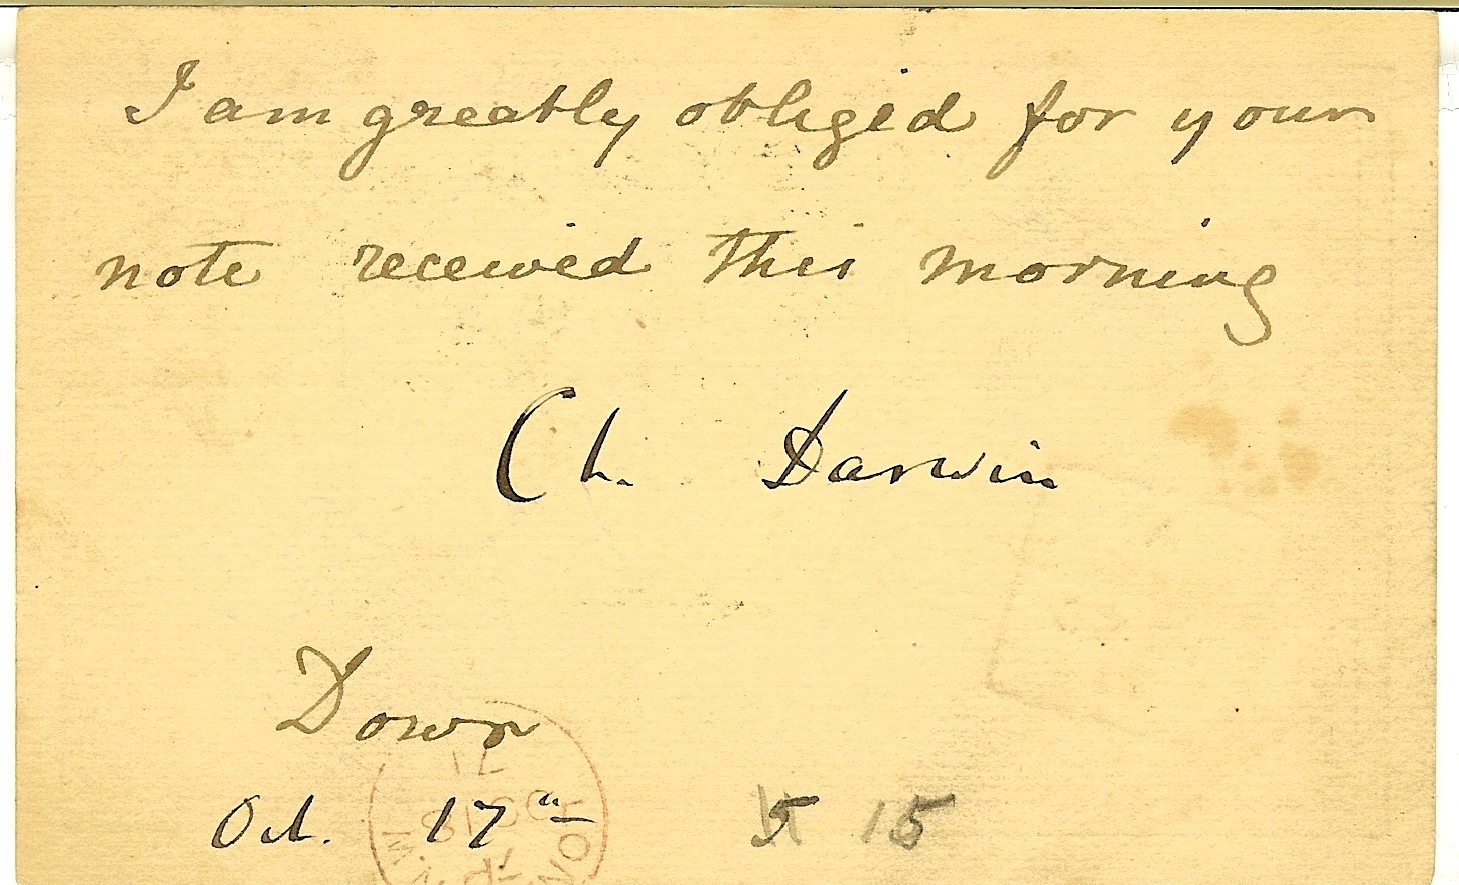 I am greatly obliged for your
note received this morning
Ch. Darwin
Down
Oct. 17th
5 15